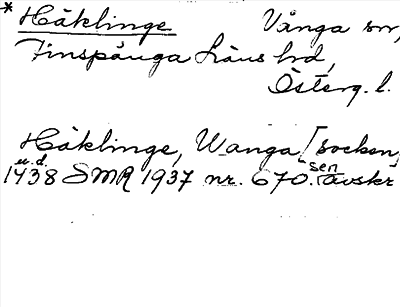 * Häklinge Vånga sn,
Finspånga läns hd,
Österg. l.
Häklinge, Wanga [socken,
u.d.
1438 SMR 1937 nr. 670. sen avskr